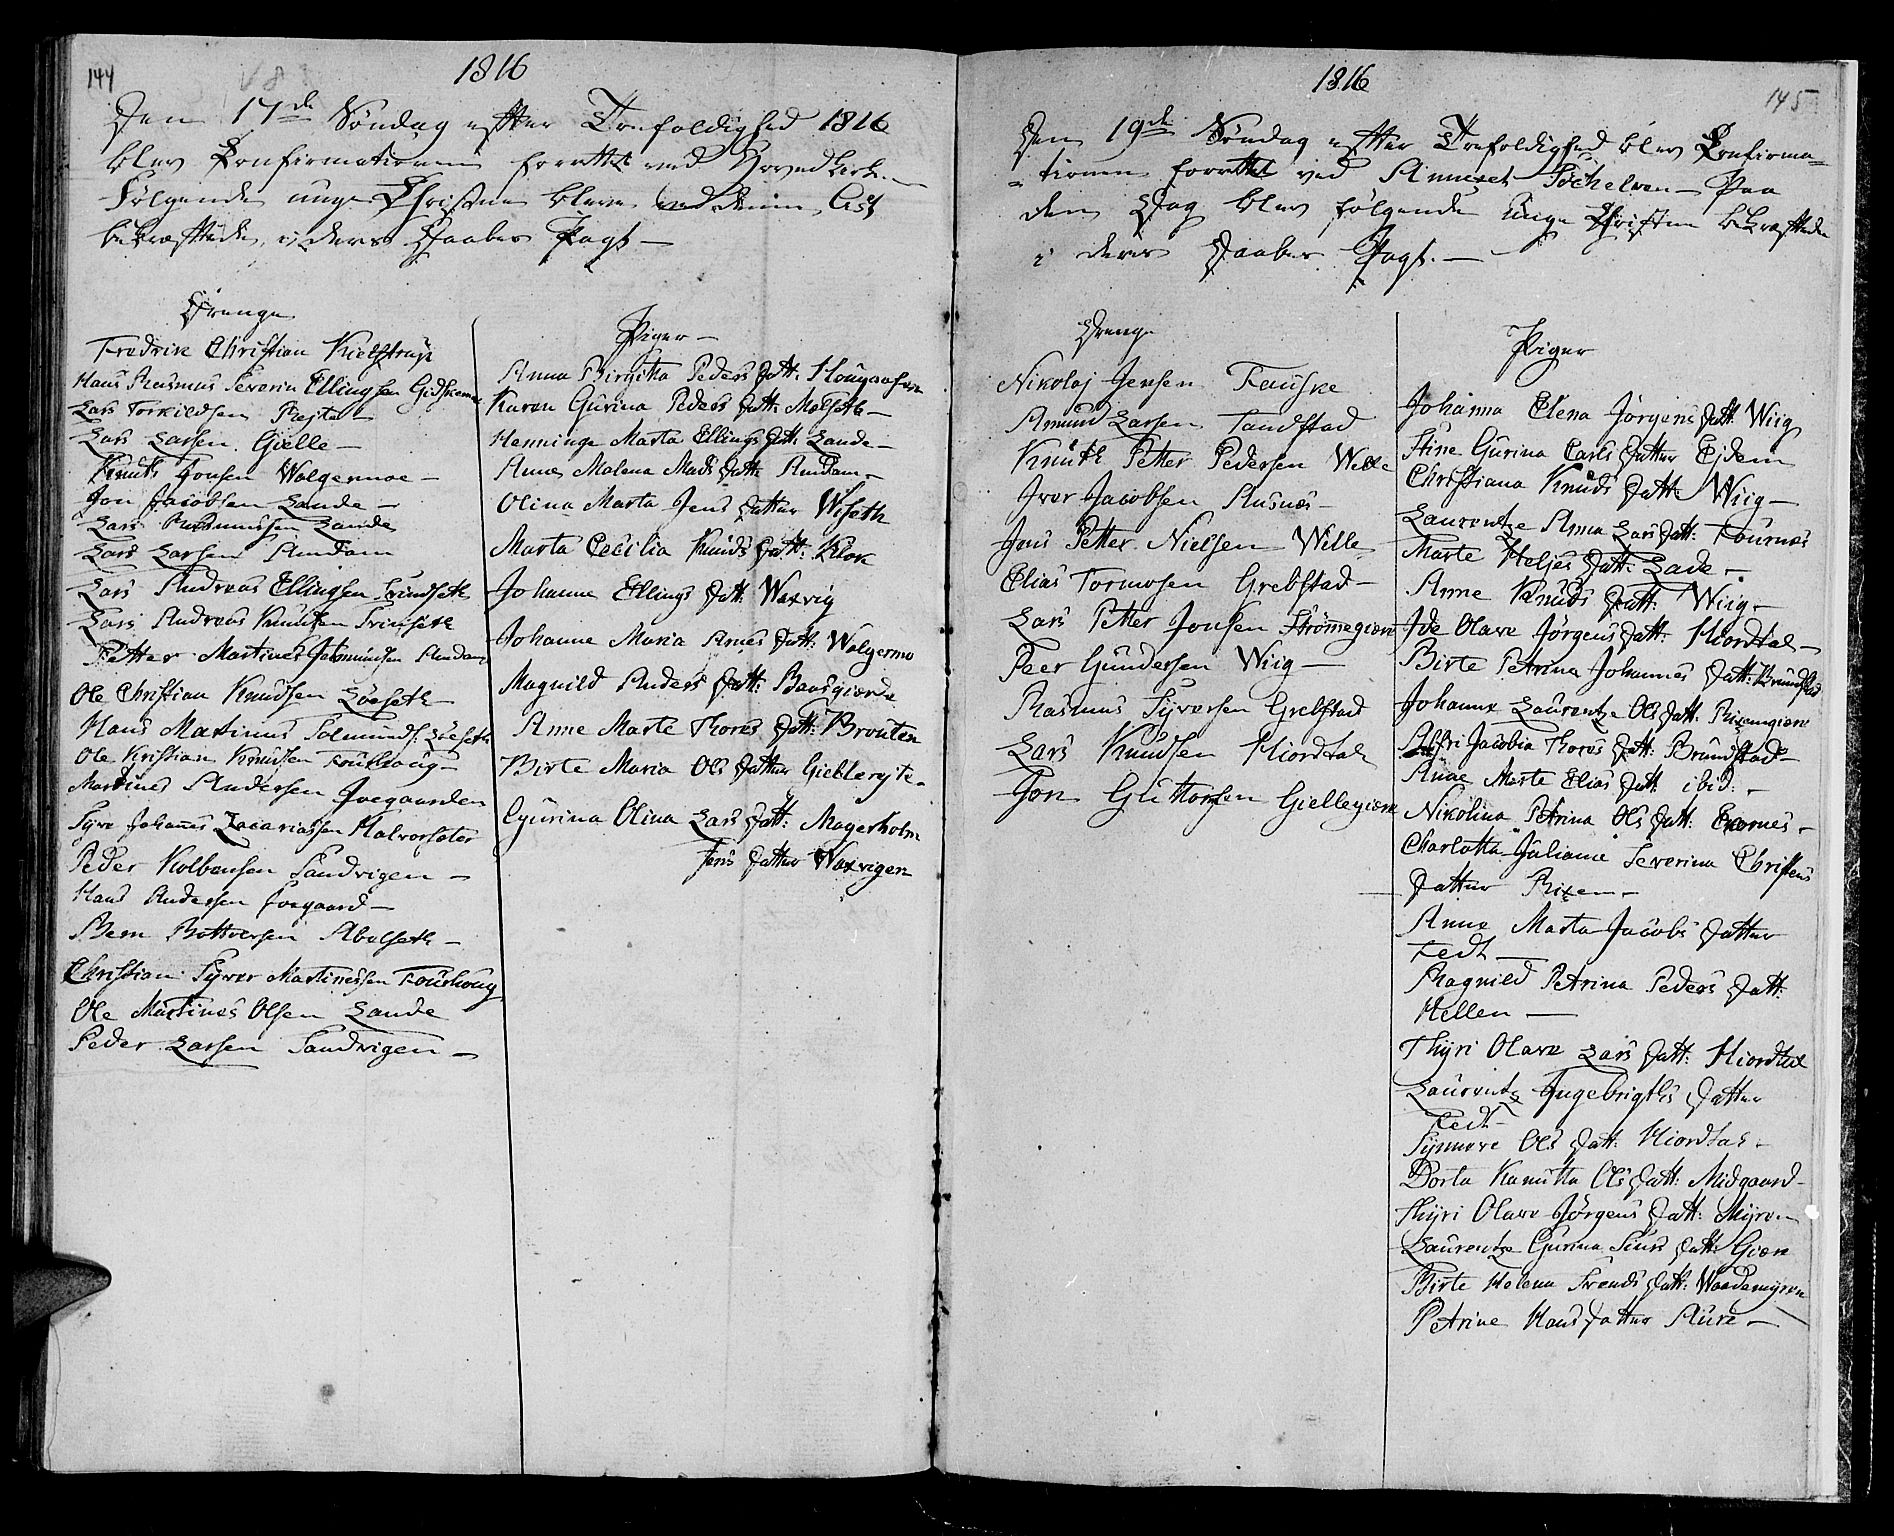 144
1816
Den 17de Søndag efter Trefoldighed 1816
blev Confirmationen forrettet ved Hovedkirken
Følgende unge Christne bleve ved denne Act
bekræftede i deres Daabes Pagt —
Drenge
Fredrik Christian Kielstrup
Hans Rasmus Severin Ellingsen Gidskemoe
Lars Torkildsen Rejte —
Lars Larsen Gielle —
Knut Jonsen Walgermoe —
Jon Jacobsen Lande —
Lars Rasmussen Lande
Lars Larsen Amdam
Lars Andreas Ellingsen Trindseth
Lars Andreas Knudsen Trinseth
Petter Martines Amdam
Ole Christian Knudsen Löeseth
Hans Martinus Solmunds: Löeseth
Ole Kristian Knudsen Fouhoug —
Martines Andersen Joegaarden
Syvr Johannes Zacariassen Halvorseter
Peder Kolbensen Sandvigen —
Hans Andersen Joegaard —
Bern Bottversen Abelseth —
Christian Syver Martinessen Fourhoug
Ole Martines Olsen Lande
Peder Larsen Sandvigen —
Piger —
Anna Birgitha Peders Datt: Hougaasen
Karen Gurina Peders Datt: Melseth —
Henninge Marta Ellings Datt: Lande —
Anne Malena Mads Datt: Amdam —
Olina Marta Jens Datter Wiseth
Marta Cecilia Knuds Datt: Klok
Johanne Ellings Datt: Waxvig
Johanne Maria Arnes Datt: Walgermo
Magnild Anders Datt: Baasgierde
Anne Marte Thores Datt: Brouten
Birte Maria Ols Datter Gielleryte —
Gurina Olina Lars Datt: Magerholm
Jens Datter Waxvigen
1816
145
Den 19de Søndag efter Trefoldighed blev Confirma-
-tionen forrettet ved Annexet Söchelven — Paa
den Dag blev følgende Unge Christne bekræftede
i deres Daabes Pagt. —
Drenge
Nikolaj Jensen Fauske
Amund Larsen Tandstad
Knuth Petter Pedersen Welle
Iver Jacobsen Ausnæs —
Jens Petter Nielsen Welle
Elias Tormosen Grebstad —
Lars Petter Jonsen Strömegiere
Peer Gundersen Wiig —
Rasmus Syversen Grebstad
Lars Knudsen Hiordtal
Jon Guttormsen Giellegiere
Piger
Johanna Elena Jørgens Datt: Wiig
Stine Gurina Carls Datter Ejdem
Christiana Knuds Datt: Wiig —
Laurentze Anna Lars Datt: Tournæs
Marte Heljes Datt: Lade —
Anne Knuds Datt: Wiig —
Ide Olave Jørgens Datt: Hiordtal —
Birte Petrina Johannes Datt: Brunstad
Johanne Laurentze Ols Datt: Rixemgiere
Affri Jacobia Thores Datt: Brundstad —
Anne Marte Elias Datt ibid: —
Nikolina Petrina Ols Datt: Exornes —
Charlotta Juliane Severina Christens
Datter Rixem —
Anne Marta Jacobs Datter
Fedt —
Ragnild Petrina Peders Datt:
Hellen —
Thyri Olave Lars Datt: Hiordtal
Laurentz Ingebrigths Datter
Fedt —
Synneve Ols Datt: Hiordtal —
Dorta Kanutta Ols Datt: Midgaard —
Thyri Olave Jørgens Datt: Myren
Laurentze Gurina Siurs Datt: Giere
Birte Helena Svends Datt: Waademyren
Petrine Hans Datter Aure —